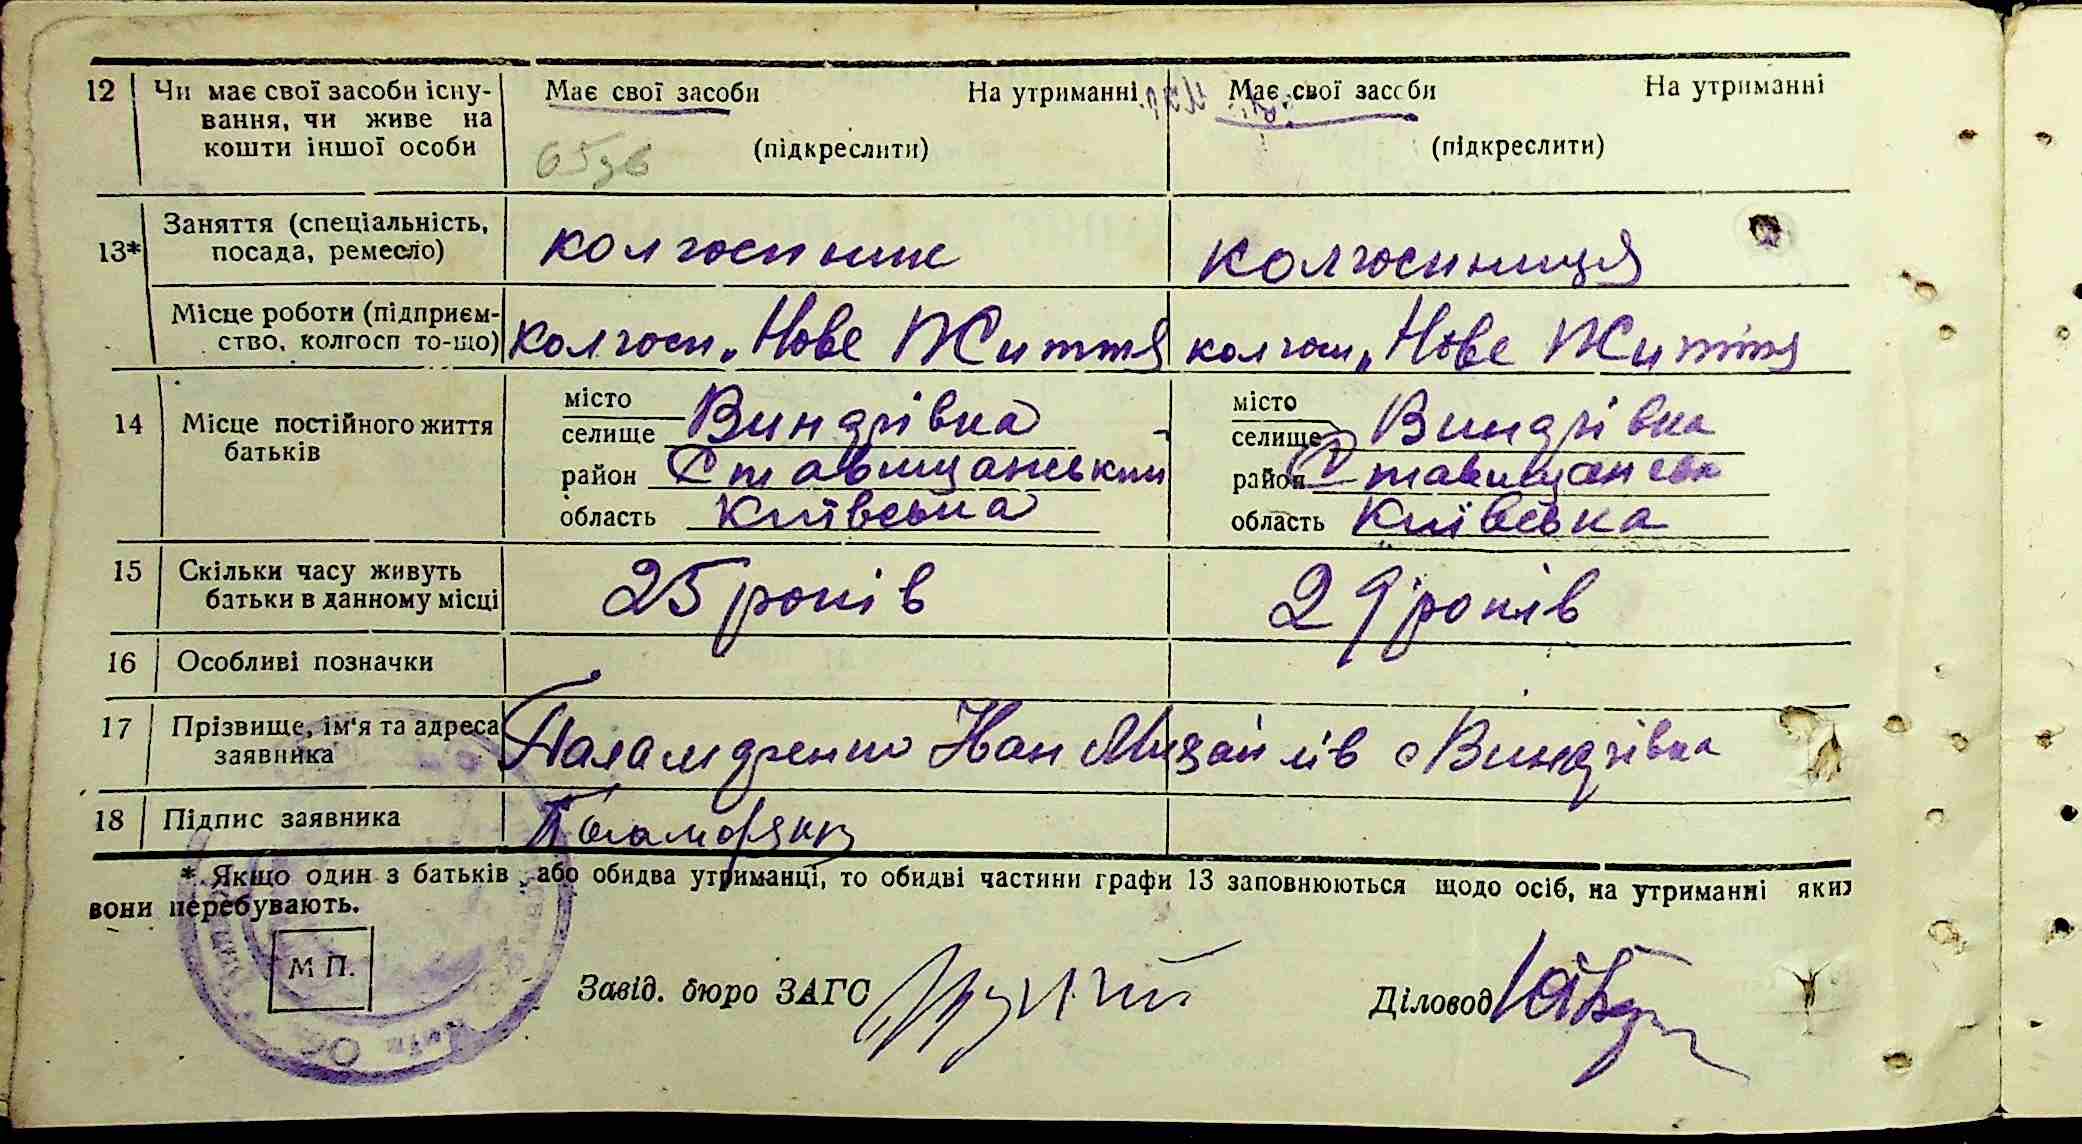 12 Чи має свої засоби існу- Має свої засоби На утриманні Має свої засоби На утриманні
вання, чи живе на
кошти іншої особи (підкреслити) (підкреслити)
13* Заняття (спеціальність, колгоспник колгоспниця
посада, ремесло)
Місце роботи (підприєм- колгосп „Нове Життя колгосп „Нове Життя
ство, колгосп то-що)
14 Місце постійного життя місто Виндрівка місто Виндрівка
батьків селище селище
район Ставищанський район Ставищанськ
область Київська область Київська
15 Скільки часу живуть 25 років 29 років
батьки в данному місці
16 Особливі позначки
17 Прізвище, ім'я та адреса Паламаренко Іван Михайлів с Виндрівка
заявника
18 Підпис заявника
* Якщо один з батьків, або обидва утриманці, то обидві частини графи 13 заповнюються щодо осіб, на утриманні яких
вони перебувають.
М П.
Завід. бюро ЗАГС Діловод